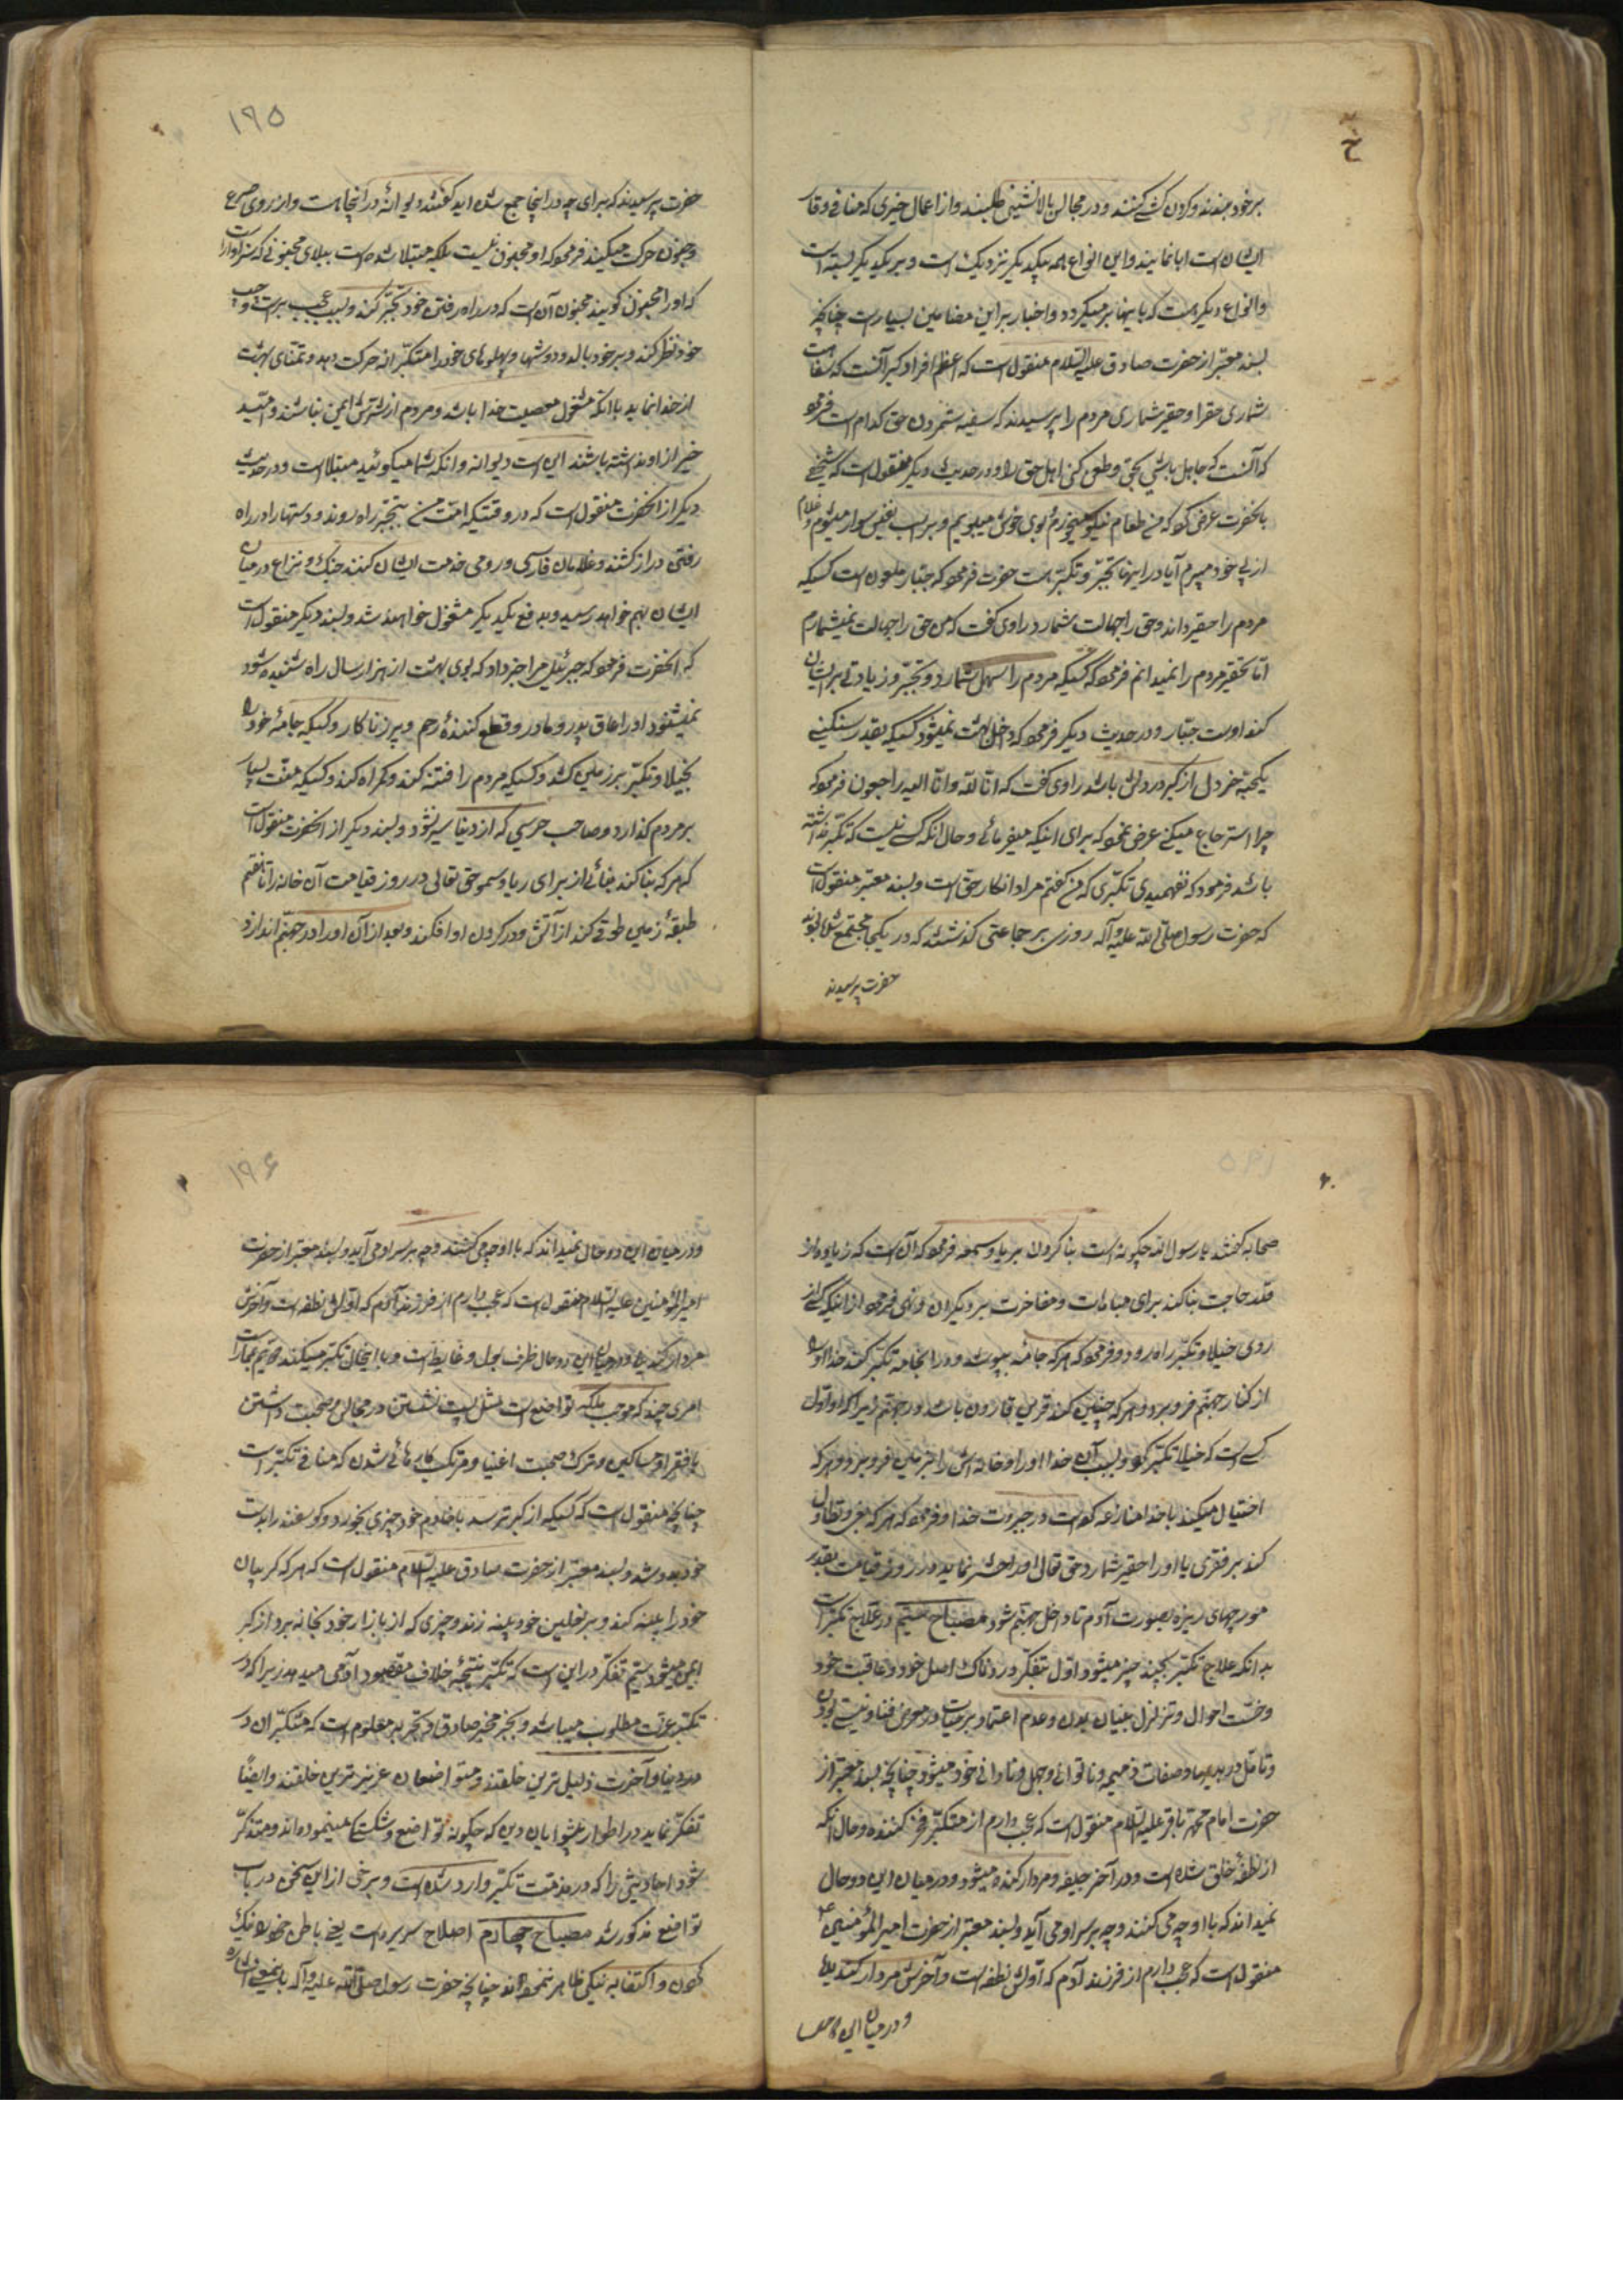 بر خود ببندند و کردن کشی کنند و در مجالس بالانشینی طلبند و از اعمال خیری که منافی وقار
ایشان است ابا نمایند و این انواع همه بیکدیگر نزدیک است و بر یکدیگر بسته است
و انواع دیگر هست که باینها بر میگردد و اخبار بر این مضامین بسیار است چنانچه
بسند معتبر از حضرت صادق علیه السلام منقول است که اعظم افراد کبر آنست که سفاهت
شماری حق را و حقیر شماری مردم را پرسیدند که سفیه شمردن حق کدام است فرمود
که آنست که جاهل باشی بحق و طعن کنی اهل حق را و در حدیث دیگر منقول است که شخصی
بآنحضرت عرض کرد که من طعام نیکو میخورم و بوی خوش میبویم و بر اسب نفیس سوار میشوم و غلام
از پی خود میبرم آیا در اینها تجبر و تکبر هست حضرت فرمود که جبار ملعون است کسیکه
مردم را حقیر داند و حق را جهالت شمارد راوی گفت که من حق را جهالت نمیشمارم
اما تحقیر مردم را نمیدانم فرمود که کسیکه مردم را سهل شمارد و تجبر و زیادتی بر ایشان
کند اوست جبار و در حدیث دیگر فرمود که داخل بهشت نمیشود کسیکه بقدر سنگینی
یکحبه خردل از کبر در دلش باشد راوی گفت که انا لله و انا الیه راجعون فرمود که
چرا استرجاع میکنی عرض نمود که برای اینکه میفرمائی و حال آنکه کسی نیست که تکبر نداشته
باشد فرمود که نفهمیدی تکبری که من گفتم مراد انکار حق است و بسند معتبر منقول است
که حضرت رسول صلی الله علیه و آله روزی بر جماعتی گذشتند که در یکجا مجتمع شده بودند
حضرت پرسیدند
۱۹۵
حضرت پرسیدند که برای چه در اینجا جمع شده اید گفتند دیوانهٔ در اینجا هست و از روی صرع
و جنون حرکت میکند فرمود که او مجنون نیست بلکه مبتلا شده است ببلای مجنونی که سزاوار است
که او را مجنون کویند مجنون آن است که در راه رفتن خود تبختر کند و بسبب عجب بر راست و چپ
خود نظر کند و بر خود بالد و دوشها و پهلوهای خود را متکبرانه حرکت دهد و تمنای بهشت
از خدا نماید با آنکه مشغول معصیت خدا باشد و مردم از شرش ایمن نباشند و امید
خیر از او نداشته باشند این است دیوانه و آنکه شما میکوئید مبتلا است و در حدیث
دیگر از آنحضرت منقول است که در وقتیکه امت من بتبختر راه روند و دستها را در راه
رفتن دراز کشند و غلامان فارسی و رومی خدمت ایشان کنند جنگ و نزاع در میان
ایشان بهم خواهد رسید و بدفع یکدیگر مشغول خواهند شد و بسند دیگر منقول است
که آنحضرت فرمود که جبرئیل مرا خبر داد که بوی بهشت از هزار سال راه شنیده شود
نمیشنود او را عاق پدر و مادر و قطع کنندهٔ رحم و پیر زناکار و کسیکه جامهٔ خود را
بخیلا و تکبر بر زمین کشد و کسیکه مردم را فتنه کند و گمراه کند و کسیکه منت بسیار
بر مردم گذارد و صاحب حرصی که از دنیا سیر نشود و بسند دیگر از آنحضرت منقول است
که هر که بنا کند بنائی از برای ریا و سمعه حق تعالی در روز قیامت آن خانه را تا هفتم
طبقهٔ زمین طوقی کند از آتش و در کردن او افکند و بعد از آن او را در جهنم اندازد
صحابه گفتند یا رسول الله چگونه است بنا کردن بریا و سمعه فرمود که آن است که زیاد از
قدر حاجت بنا کند برای مباهات و مفاخرت بر دیگران و نهی فرمود از اینکه کسی از
روی خیلا و تکبر راه رود و فرمود که هر که جامهٔ بپوشد و در آنجامه تکبر کند خدا او را
از کنار جهنم فرو برد و هر که چنین کند قرین قارون باشد در جهنم زیرا که او اول
کسی است که خیلا و تکبر کرد و بسبب آن خدا او را و خانه اش را بزمین فرو برد و هر که
اختیال میکند با خدا منازعه کرده است در جبروت خدا و فرمود که هر که بغی و تطاول
کند بر فقری یا او را حقیر شمارد حق تعالی او را حشر نماید در روز قیامت بقدر
مورچهای ریزه بصورت آدم تا داخل جهنم شود مصباح سیم در علاج تکبر است
بدانکه علاج تکبر بچند چیز میشود اول بتفکر و ردنائت اصل خود و عاقبت خود
و خست احوال و تزلزل بنیان بدن و عدم اعتماد بر حیات و در معرض فنا و نیستی بودن
و تامل در بدیها و صفات ذمیمه و ناتوانی و جهل و نادانی خود میشود چنانچه بسند معتبر از
حضرت امام محمد باقر علیه السلام منقول است که عجب دارم از متکبر فخر کننده و حال آنکه
از نطفهٔ خلق شده است و در آخر جیفه و مردار گنده میشود و در میان این دو حال
نمیداند که با او چه می کنند و چه بر سر او می آید و بسند معتبر از حضرت امیرالمؤمنین ع
منقول است که عجب دارم از فرزند آدم که اولش نطفه است و آخرش مردار گندیده
و در میان این دو حال
۱۹۶
و در میان این دو حال نمیداند که با او چه می کنند و چه بر سر او می آید و بسند معتبر از حضرت
امیرالمؤمنین علیه السلام منقول است که عجب دارم از فرزند آدم که اولش نطفه است و آخرش
مردار گندیده و در میان این دو حال ظرف بول و غایط است و با اینحال تکبر میکند دویم بممارست
امری چند که موجب ملکه تواضع است مثل پست نشستن در مجالس و صحبت داشتن
با فقرا و مساکین و ترک صحبت اغنیا و مرتکب کارهائی شدن که منافی تکبر است
چنانچه منقول است که کسیکه از کبر ترسد با خادم خود چیزی بخورد و گوسفند را بدست
خود بدوشد و بسند معتبر از حضرت صادق علیه السلام منقول است که هر که گریبان
خود را پینه کند و بر نعلین خود پینه زند و چیزی که از بازار خرد خود بخانه برد از کبر
ایمن میشود سیم تفکر در این است که تکبر نتیجهٔ خلاف مقصود آدمی میدهد زیرا که در
تکبر عزت مطلوب میباشد و بخبر مخبر صادق و تجربه معلوم است که متکبران در
در دنیا و آخرت ذلیل ترین خلقند و متواضعان عزیزترین خلقند و ایضاً
تفکر نماید در اطوار پیشوایان دین که چگونه تواضع و شکستگی مینموده اند و متذکر
شود احادیثی را که در مذمت تکبر وارد شده است و برخی از این سخن در باب
تواضع مذکور شد مصباح چهارم اصلاح سریره است یعنی باطن خود را نیک
کردن و اکتفا به نیکی ظاهر ننموده اند چنانچه حضرت رسول صلی الله علیه و آله